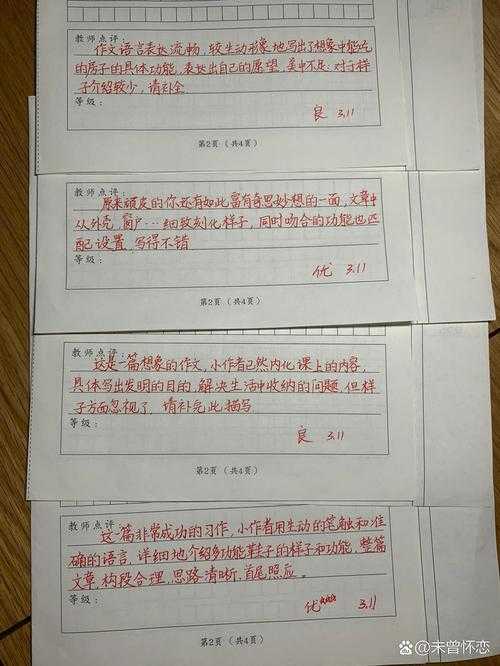 教师点评:
作文语言表达流畅,较生动形象地写出了想象中能吃
的房子的具体功能,表达出自己的愿望,美中不足:对于样
子介绍较少,请补全
等级:
良 3.11
第2页(共4页)
教师点评:
原来顽皮的你还有如此富有奇思妙想的一面,文章中
从外壳,窗户…细致刻化样子,同时吻合的功能也匹
配设置,写得不错
等级:
优 3.11
第2页(共4页)
教师点评:
这是一篇想象的作文,小作者已然内化课上的内容,
具体写出发明的目的,解决生活中收纳的问题,但样
子方面忽视了,请补充此描写
等级:
良 3.11
第2页(共4页)
教师点评:
这篇非常成功的习作,小作者用生动的笔触和准
确的语言,详细地介绍多功能鞋子的样子和功能,整篇
文章,构段合理,思路清晰,首尾照应。
等级:
优 3.11
第2页(共4页)
百家号@未曾怀恋